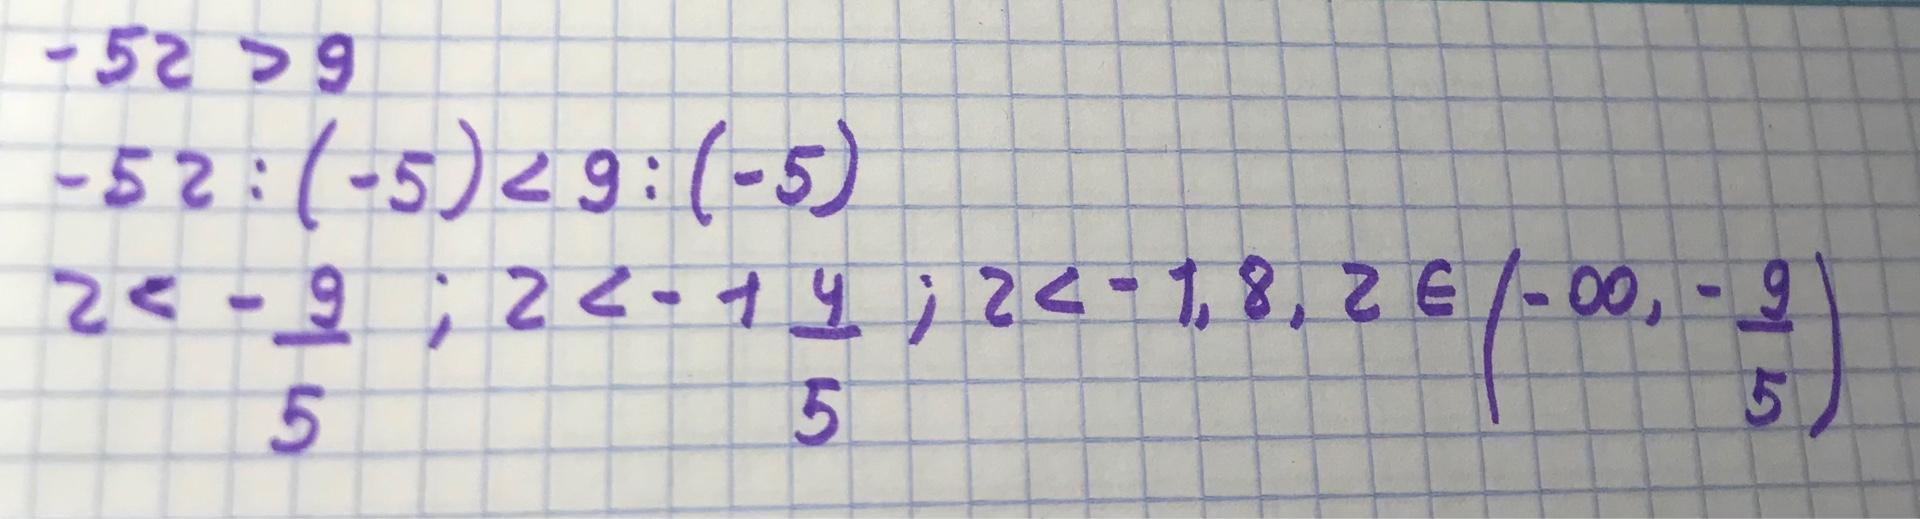 -5z > 9
-5z : (-5) < 9 : (-5)
z < - 9/5 ; z < - 1 4/5 ; z < - 1,8, z ∈ (-∞, - 9/5)